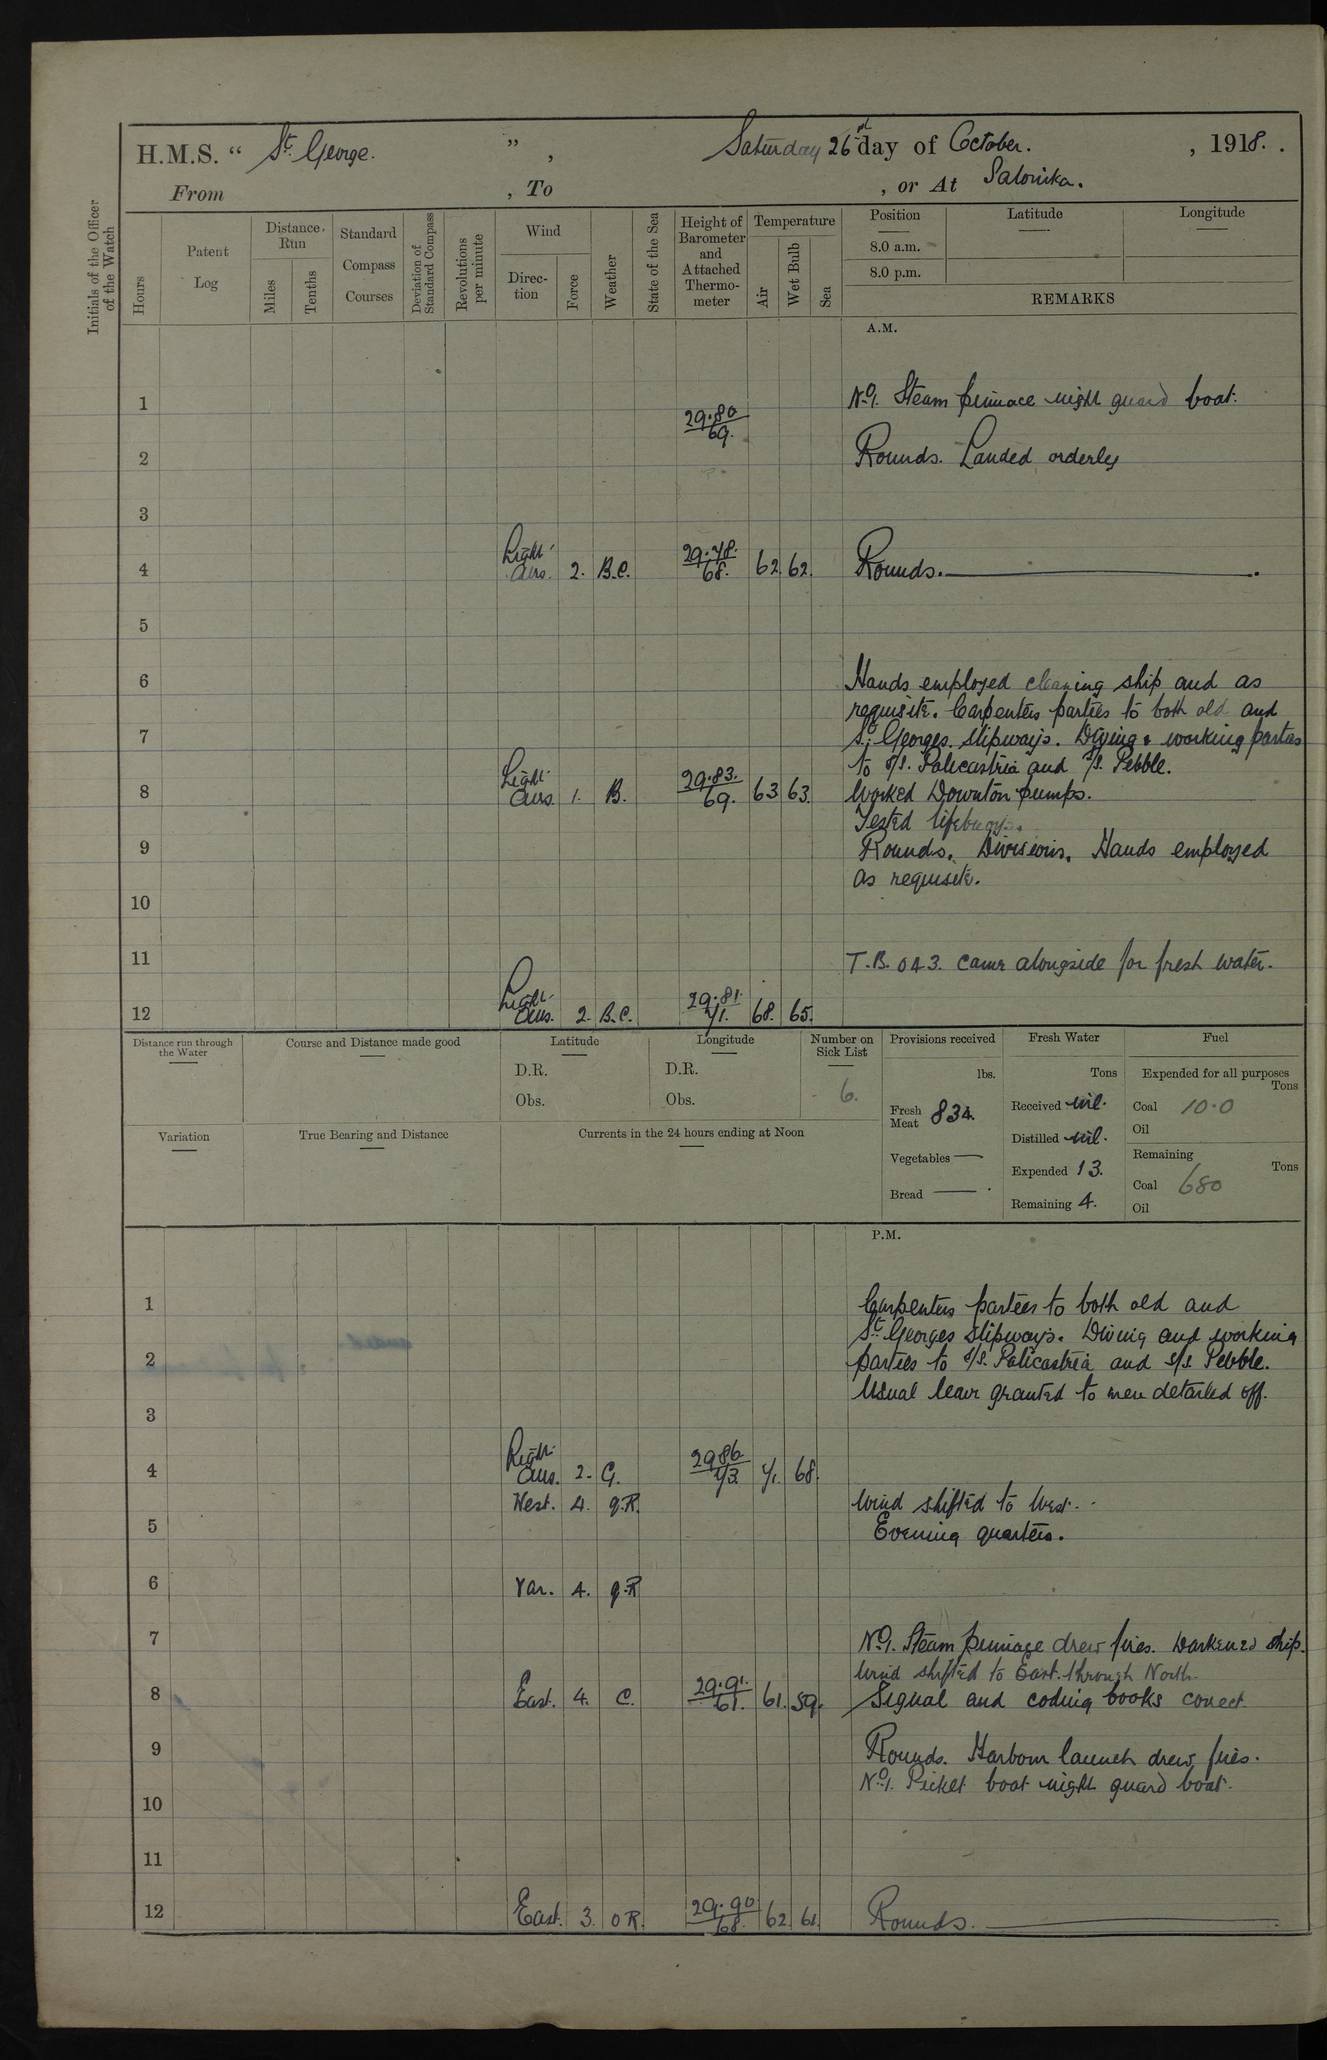 H.M.S. “ St. George. ” , Saturday 26 day of October. , 1918. .
From , To , or At Salonika.
Initials of the Officer of the Watch
Hours
Patent Log
Distance Run
Miles
Tenths
Standard Compass Courses
Deviation of Standard Compass
Revolutions per minute
Wind
Direction
Force
Weather
State of the Sea
Height of Barometer and Attached Thermometer
Temperature
Air
Wet Bulb
Sea
Position
8.0 a.m.
8.0 p.m.
Latitude
Longitude
REMARKS
A.M.
1 No1. Steam pinnace night guard boat.
29.80
69.
2 Rounds. Landed orderly
3
4 Light airs. 2. B.C. 29.78. 68. 62. 62. Rounds.
5
6 Hands employed cleaning ship and as
requisite. Carpenters parties to both old and
7 St. Georges slipways. Diving & working parties
to s/s. Palicastria and s/s. Pebble.
8 Light airs 1. B. 29.83. 69. 63 63. Worked Downton pumps.
Tested lifebuoys.
9 Rounds. Divisions. Hands employed
as requisite.
10
11 T.B. 043. came alongside for fresh water.
12 Light airs. 2. B.C. 29.81. 71. 68. 65.
Distance run through the Water
Course and Distance made good
Latitude
D.R.
Obs.
Longitude
D.R.
Obs.
Number on Sick List
6.
Variation
True Bearing and Distance
Currents in the 24 hours ending at Noon
Provisions received
lbs.
Fresh Meat 834.
Vegetables —
Bread — .
Fresh Water
Tons
Received nil.
Distilled nil.
Expended 13.
Remaining 4.
Fuel
Expended for all purposes
Tons
Coal 10.0
Oil
Remaining
Tons
Coal 680
Oil
P.M.
1 Carpenters parties to both old and
St. Georges slipways. Diving and working
2 parties to s/s. Palicastria and s/s Pebble.
Usual leave granted to men detailed off.
3
4 Light airs. 2. G. 29.86 73 71. 68.
West. 4. q.R. Wind shifted to West.
5 Evening quarters.
6 Var. 4. q.R
7 No1. Steam pinnace drew fires. Darkened ship.
Wind shifted to East through North.
8 East. 4. C. 29.91. 61. 61. 59. Signal and coding books correct
9 Rounds. Harbour launch drew fires.
No1. Picket boat night guard boat.
10
11
12 East. 3. O R. 29.90 68. 62. 61. Rounds.